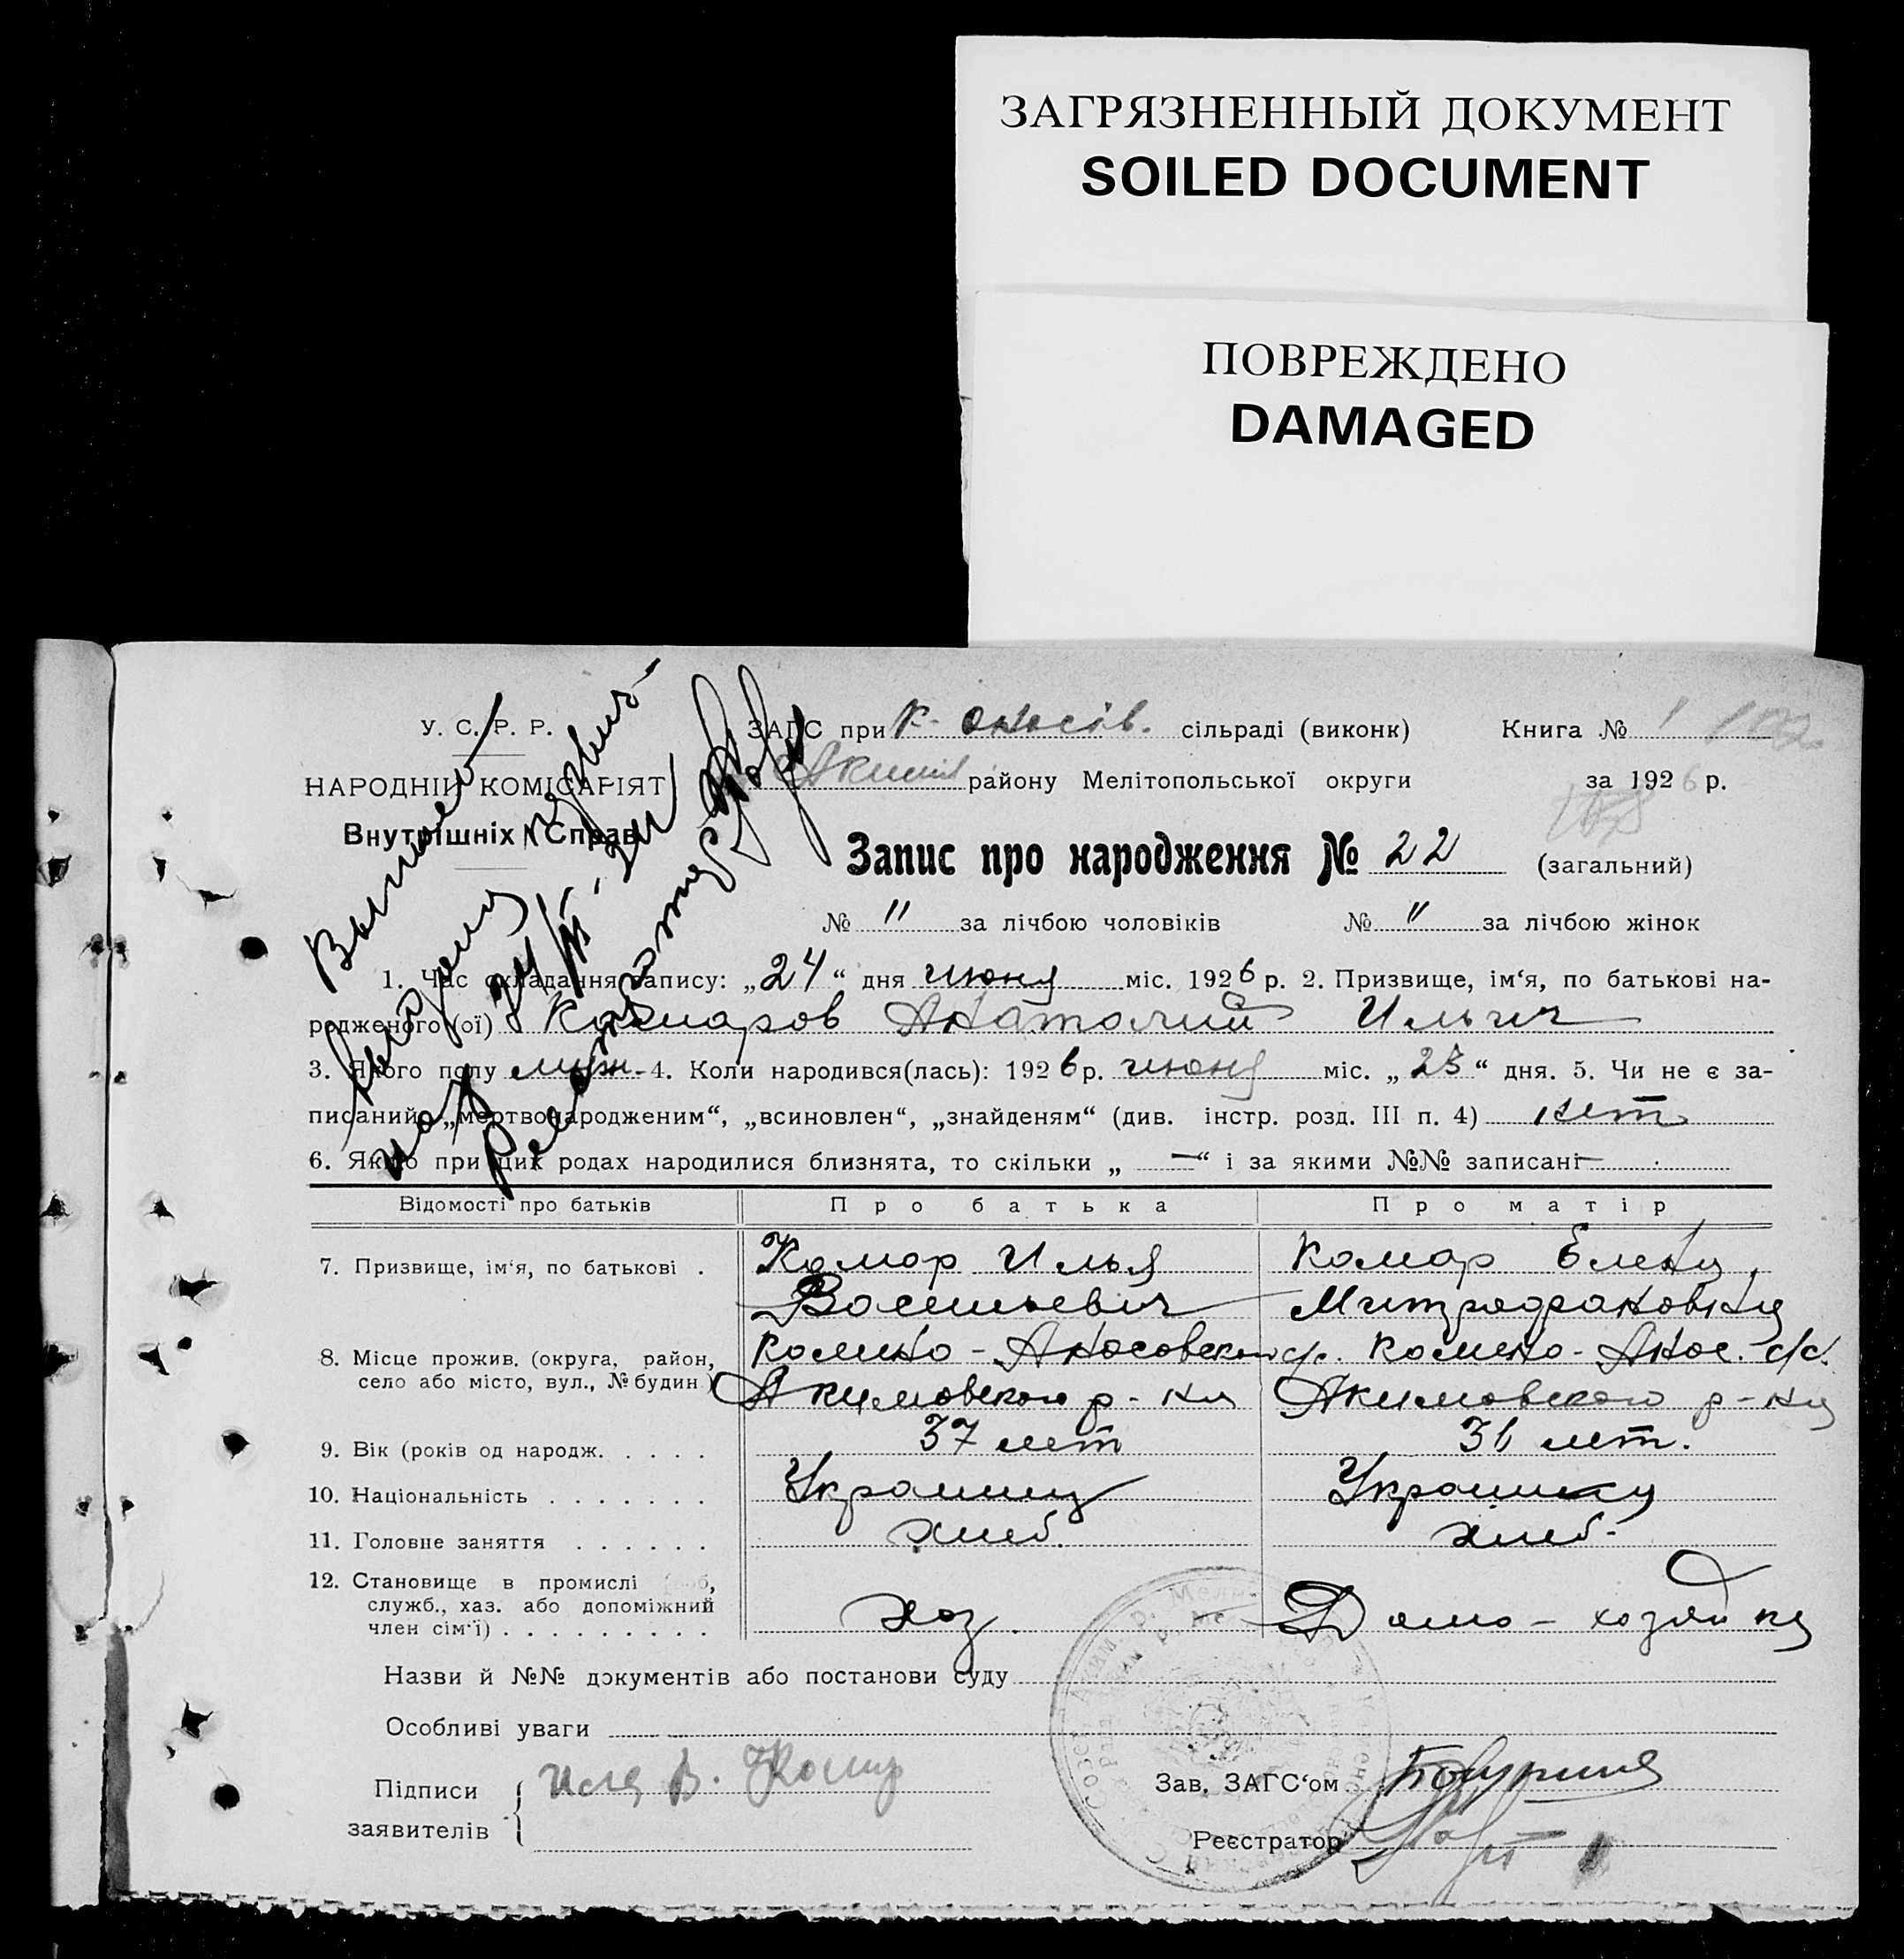 ЗАГРЯЗНЕННЫЙ ДОКУМЕНТ
SOILED DOCUMENT
ПОВРЕЖДЕНО
DAMAGED
У. С. Р. Р.
НАРОДНІЙ КОМІСАРІЯТ
Внутрішніх Справ
ЗАГС при К- сільраді (виконк) Книга № 1
Аким району Мелітопольської округи за 1926 р.
Запис про народження № 22 (загальний)
№ " за лічбою чоловіків № " за лічбою жінок
1. Час складання запису: „24“ дня июня міс. 1926 р. 2. Призвище, ім‘я, по батькові на-
родженого (ої) Комаров Анатолий Ильич
3. Якого полу муж. 4. Коли народився(лась): 1926 р. июня міс. „23“ дня. 5. Чи не є за-
писаний „мертвонародженим“, „всиновлен“, „знайденям“ (див. інстр. розд. III п. 4) нет
6. Якщо при цих родах народилися близнята, то скільки „ — “ і за якими №№ записані —
Выписел
24/III
Відомості про батьків Про батька Про матір
7. Призвище, ім‘я, по батькові . Комар Илья Комар Елена
Васильевич Митрофановна
8. Місце прожив. (округа, район, село або місто, вул., № будин.) Комино-Аносовского с/с. Комино-Анос. с/с.
Акимовского р-на Акимовского р-на
9. Вік (років од народж. . . . . 37 лет 31 лет.
10. Національність . . . . . . . Украинец Украинка
11. Головне заняття . . . . . . хлеб. хлеб.
12. Становище в промислі (роб, служб., хаз. або допоміжний член сім‘ї) . . . . . . . . . хоз. Домо-хозяйка
Назви й №№ документів або постанови суду
Особливі уваги
Підписи Илья В. Комар Зав. ЗАГС‘ом
заявителів Реєстратор